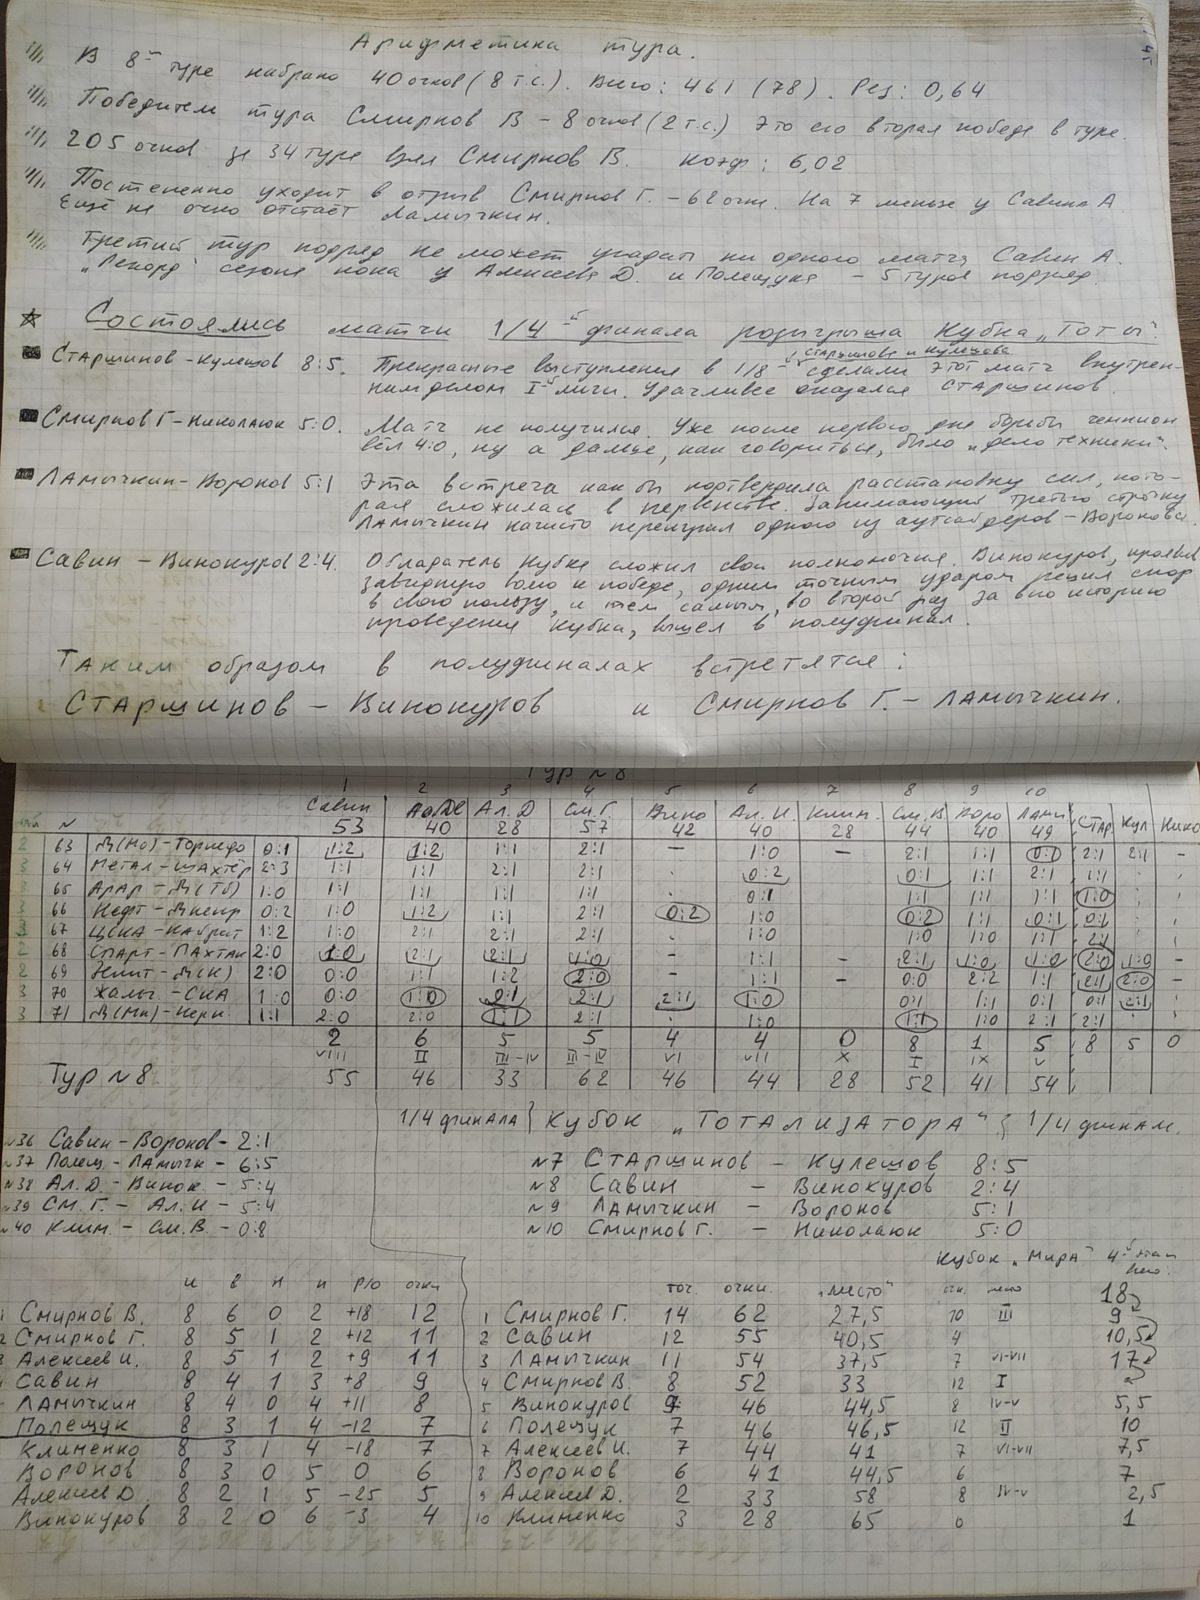 Арифметика тура.
В 8м туре набрано 40 очков (8 т.с.). Всего: 461 (78). Рез: 0,64
Победитель тура Смирнов В – 8 очков (2 т.с.) Это его вторая победа в туре.
205 очков за 34 тура взял Смирнов В. Коэф: 6,02
Постепенно уходит в отрыв Смирнов Г. – 62 очк. На 7 меньше у Савина А.
Ещё на очко отстаёт Ламычкин.
Третий тур подряд не может угадать ни одного матча Савин А.
„Рекорд" сезона пока у Алексеева Д. и Полещука – 5 туров подряд
Состоялись матчи 1/4й финала розыгрыша Кубка „Тоты".
Старшинова и Кулешова
Старшинов – Кулешов 8:5. Прекрасные выступления в 1/8й сделали этот матч внутрен-
ним делом Iй лиги. Удачливее оказался Старшинов.
Смирнов Г – Николаюк 5:0. Матч не получился. Уже после первого дня борьбы чемпион
вёл 4:0, ну а дальше, как говориться, было „дело техники".
Ламычкин – Воронов 5:1 Эта встреча как бы подтвердила расстановку сил, кото-
рая сложилась в первенстве. Занимающий третью строчку
Ламычкин начисто переиграл одного из аутсайдеров – Воронова.
Савин – Винокуров 2:4. Обладатель Кубка сложил свои полномочия. Винокуров, проявив
завидную волю к победе, одним точным ударом решил спор
в свою пользу, и тем самым, во второй раз за всю историю
проведения кубка, вышел в полуфинал.
Таким образом в полуфиналах встретятся:
Старшинов – Винокуров и Смирнов Г. – Ламычкин.
Тур №8
1 2 3 4 5 6 7 8 9 10
№ Савин Ал. Д См. Г. Вино Ал. И. Клим. См. В Воро Ламы Стар Кул Нико
53 40 28 57 42 40 28 44 40 49
2 63 Д(Мо) – Торпедо 0:1 1:2 1:2 1:1 2:1 – 1:0 – 2:1 1:1 0:1 2:1 2:1 –
3 64 Метал – Шахтёр 2:3 1:1 1:1 2:1 2:1 0:2 0:1 1:1 2:1 1:1
3 65 Арар – Д(Тб) 1:0 1:1 1:1 1:1 1:1 0:1 1:1 1:1 1:1 1:0
3 66 Нефт – Днепр 0:2 1:0 1:2 1:1 2:1 0:2 1:0 0:2 1:1 0:1 0:1
3 67 ЦСКА – Кайрат 1:2 1:0 2:1 2:1 2:1 1:0 1:0 1:0 1:1 2:1
2 68 Спарт – Пахтак 2:0 1:0 2:1 2:1 1:0 – 1:1 – 2:1 1:0 1:0 2:0 1:0 –
2 69 Зенит – Д(К) 2:0 0:0 1:1 1:2 2:0 – 1:1 – 0:0 2:2 1:1 2:1 2:0 –
3 70 Жальг – СКА 1:0 0:0 1:0 0:1 2:1 2:1 1:0 0:1 1:1 0:1 0:1 2:1
3 71 Д(Мн) – Черн. 1:1 2:0 2:0 1:1 2:1 1:0 1:1 1:0 2:1 2:1
2 6 5 5 4 4 0 8 1 5 8 5 0
VIII II III-IV III-IV VI VII X I IX V
Тур №8 55 46 33 62 46 44 28 52 41 54
1/4 финала } Кубок „Тотализатора" { 1/4 финал.
№36 Савин – Воронов – 2:1
№37 Полещ. – Ламычк – 6:5
№38 Ал. Д. – Винок. – 5:4
№39 См. Г. – Ал. И – 5:4
№40 Клим. – См. В. – 0:8
№7 Старшинов – Кулешов 8:5
№8 Савин – Винокуров 2:4
№9 Ламычкин – Воронов 5:1
№10 Смирнов Г. – Николаюк 5:0
Кубок „Мира" 4й этап
и в н п р/о очки
1 Смирнов В. 8 6 0 2 +18 12
2 Смирнов Г. 8 5 1 2 +12 11
3 Алексеев И. 8 5 1 2 +9 11
Савин 8 4 1 3 +8 9
Ламычкин 8 4 0 4 +11 8
Полещук 8 3 1 4 –12 7
Клименко 8 3 1 4 –18 7
Воронов 8 3 0 5 0 6
Алексеев Д. 8 2 1 5 –25 5
Винокуров 8 2 0 6 –3 4
точ. очки. „место" очк. место
18
1 Смирнов Г. 14 62 27,5 10 III 9
2 Савин 12 55 40,5 4 10,5
3 Ламычкин 11 54 37,5 7 VI-VII 17
4 Смирнов В. 8 52 33 12 I
5 Винокуров 9 46 44,5 8 IV-V 5,5
6 Полещук 7 46 46,5 12 II 10
7 Алексеев И. 7 44 41 7 VI-VII 7,5
8 Воронов 6 41 44,5 6 7
9 Алексеев Д. 2 33 58 8 IV-V 2,5
10 Клименко 3 28 65 0 1